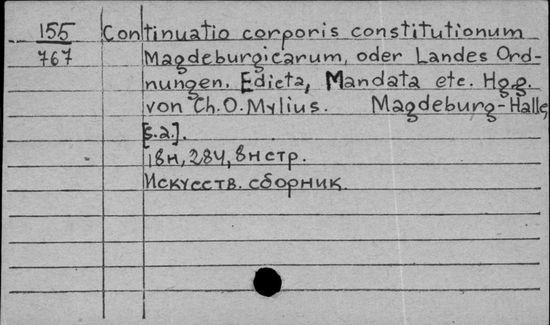 155 Continuatio corporis constitutionum
767 Magdeburgicarum, oder Landes Ord-
nungen, Edicta, Mandata etc. Hg.g.
von Ch.O.Mylius. Magdeburg-Halle,
[s.a.].
18н, 284, 8нстр.
Искусств. сборник.